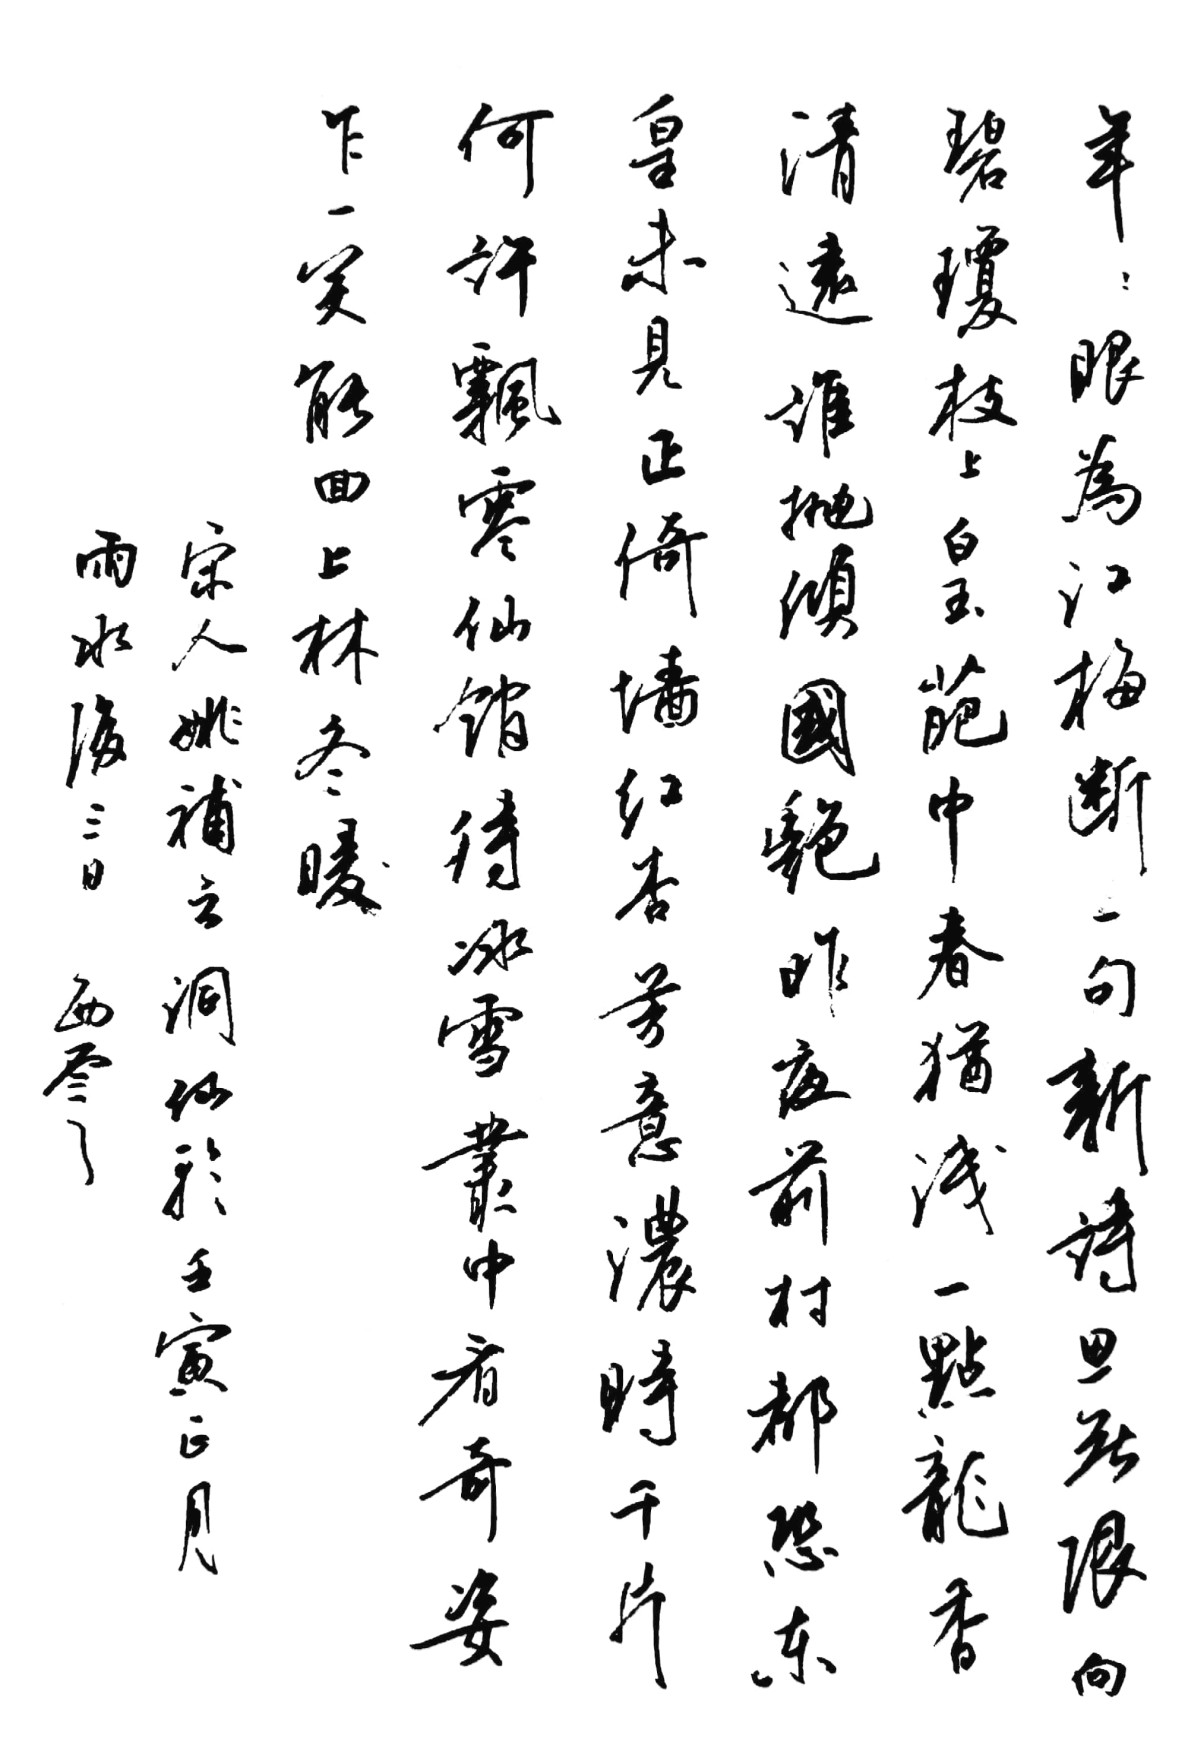 年：眼為江梅断一句新詩思无限向
碧瓊枝上白玉葩中春猶淺一點龍香
清遠誰抛傾國艷昨夜前村都恐东
皇未見正倚墻紅杏芳意濃時千片
何許飄零仙館待冰雪叢中看奇姿
乍一笑能回上林冬暖
宋人姚補之洞仙於壬寅正月
雨水後三日 西